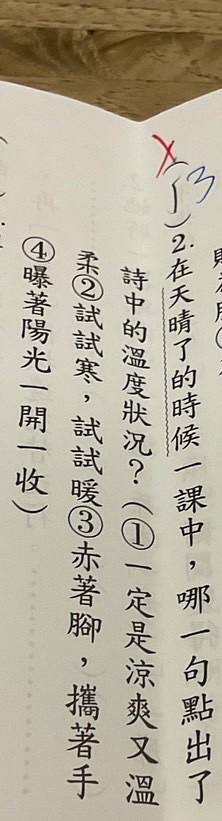 (1)2.在天晴了的時候一課中，哪一句點出了
詩中的溫度狀況？(①一定是涼爽又溫
柔②試試寒，試試暖③赤著腳，攜著手
④曝著陽光一開一收)
3